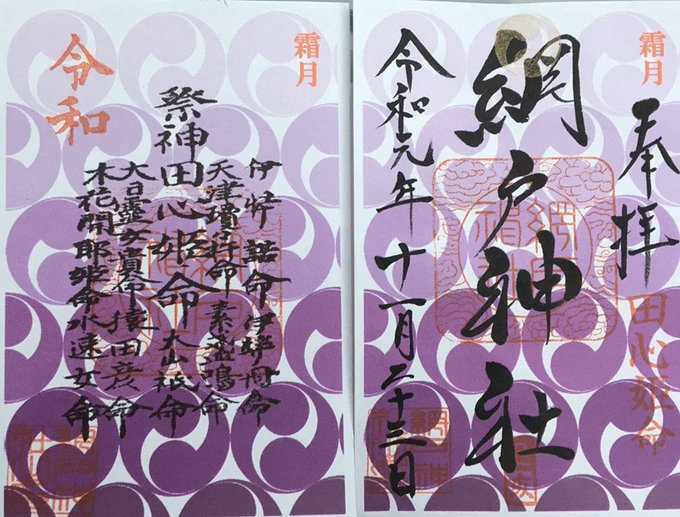 霜月
奉拝
田心姫命
網戸神社
令和元年十一月二十三日
霜月
伊弉諾命伊弉冉命
天津瓊杵命素盞鳴命
祭神田心姫命大山祇命
大日孁女貴命猿田彦命
木花開耶姫命水速女命
令和